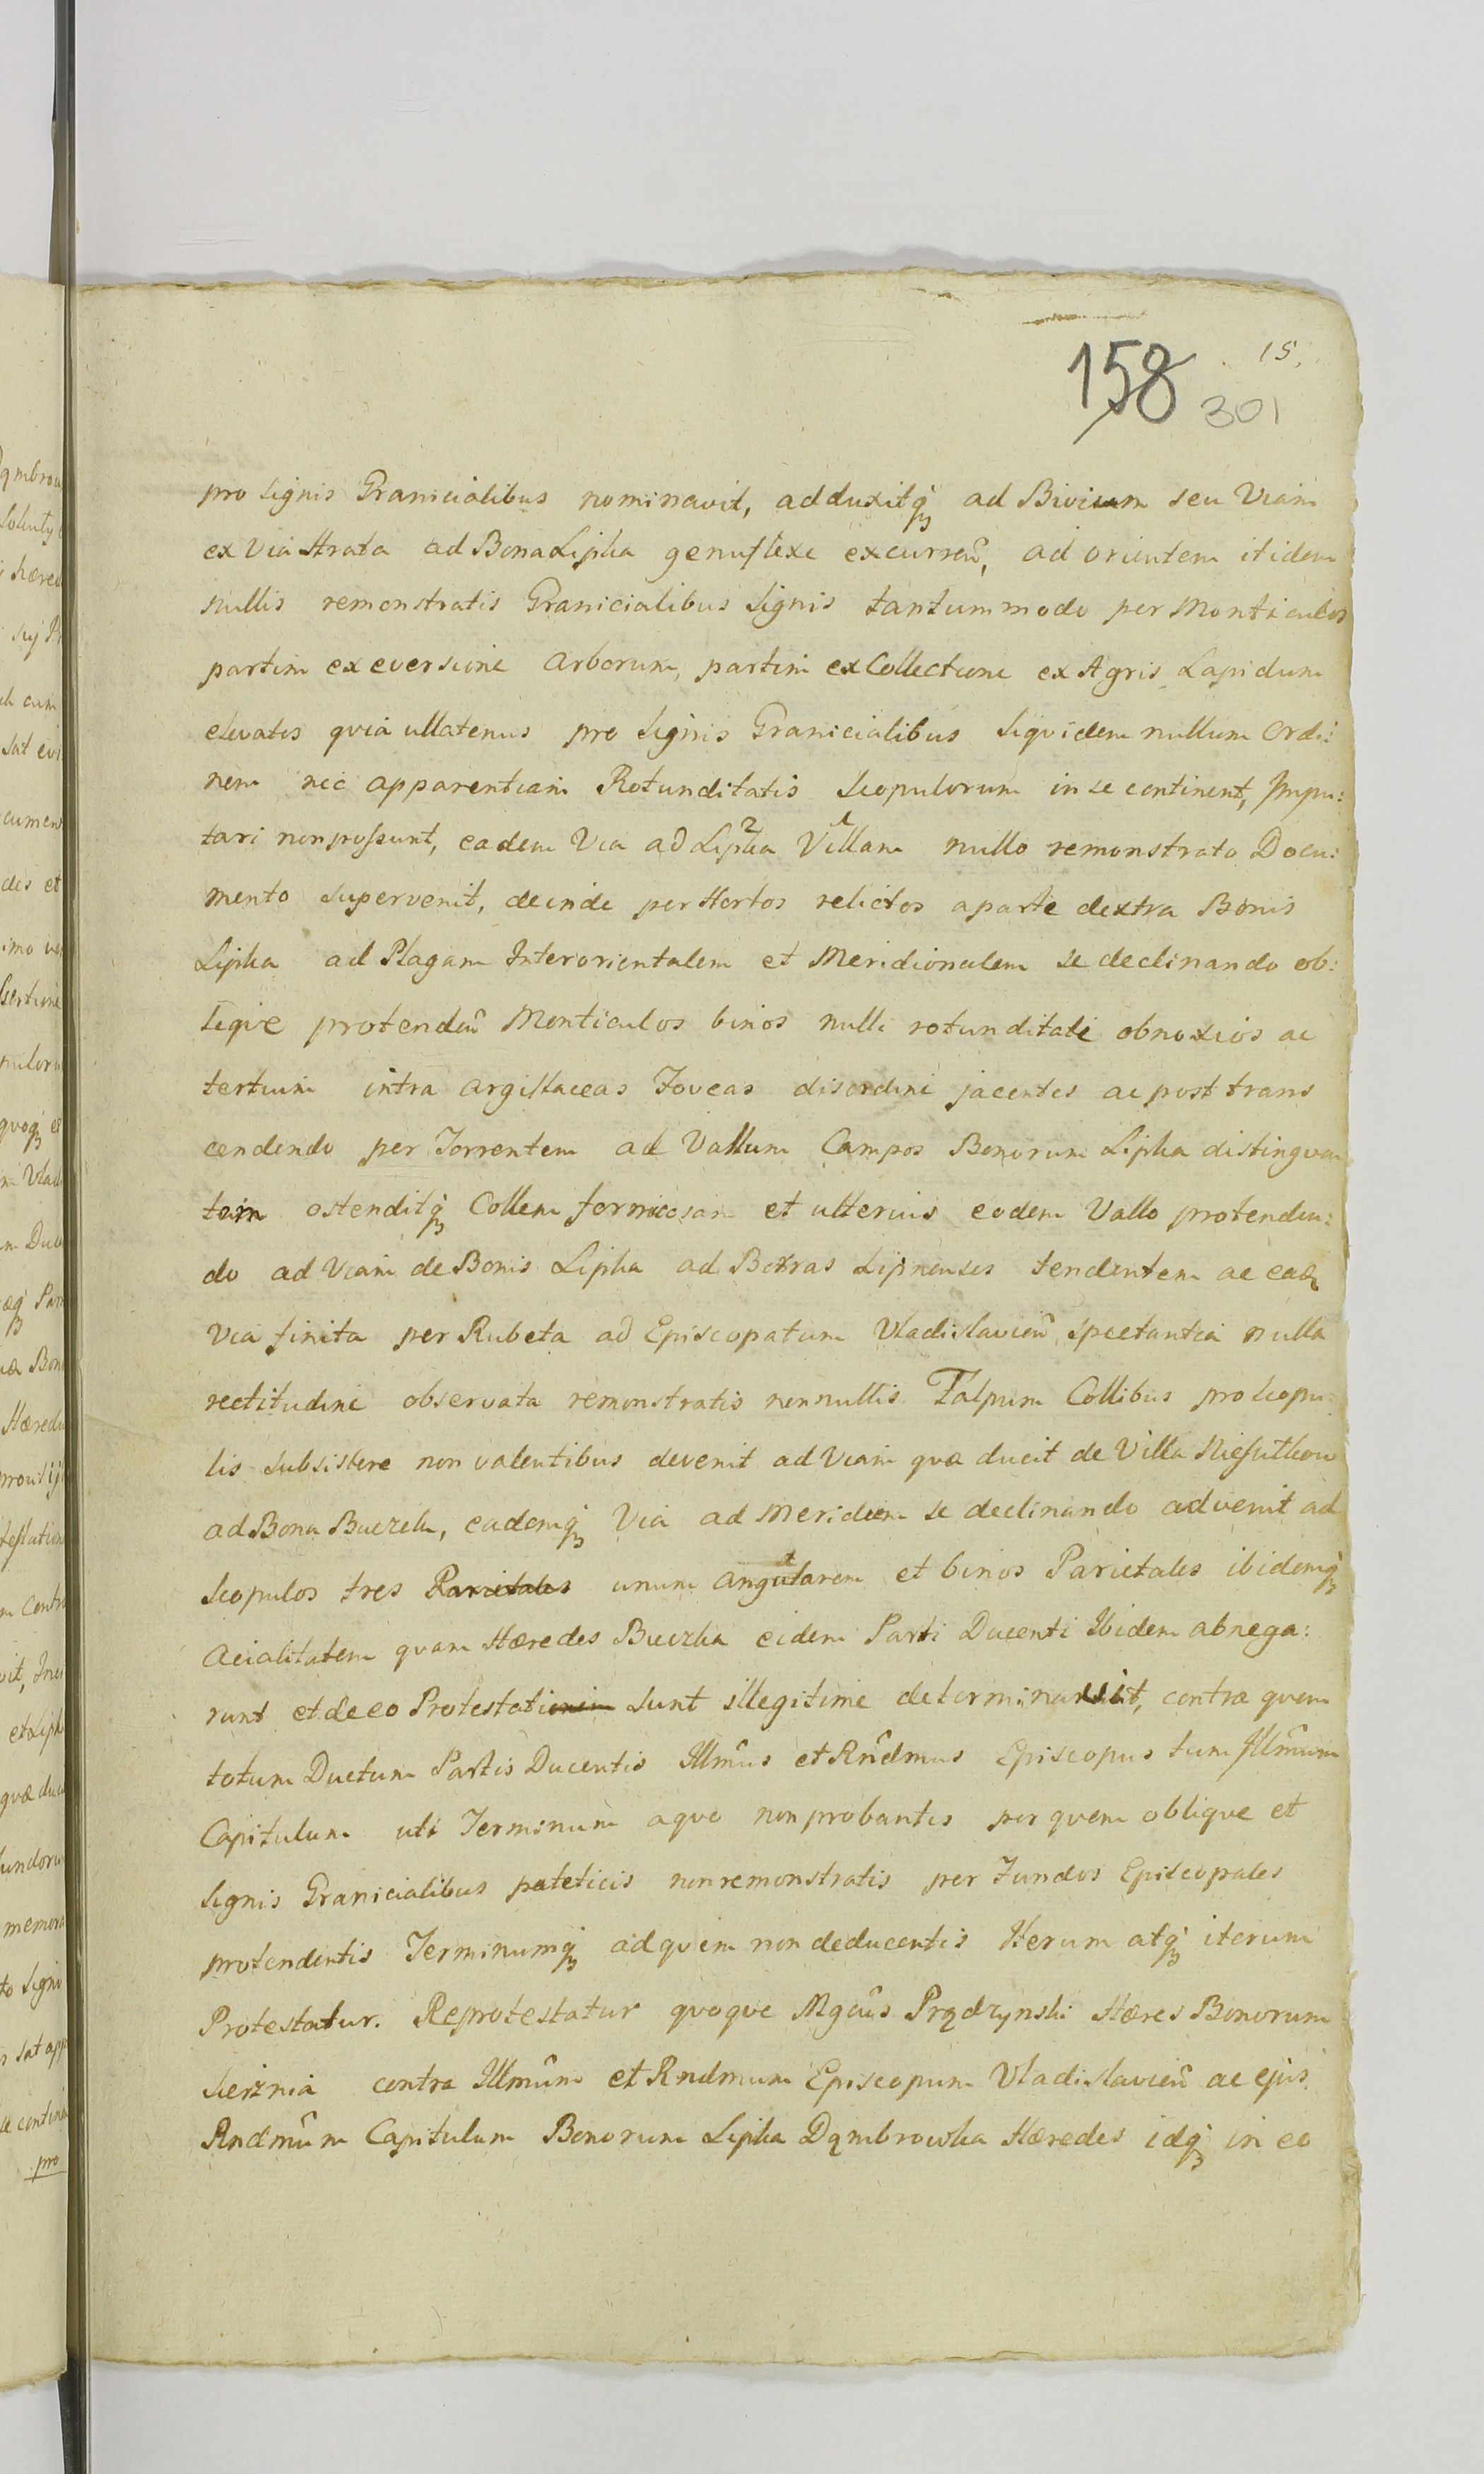 15.
158 301
pro signis Granicialibus nominavit, adduxitq̨ ad Bivium seu Viam
ex Via Strata ad Bona Lipka genuflexe excurreñ, ad orientem itidem
nullis remonstratis Granicialibus Signis tantummodo per Monticulos
partim ex eversione Arborum, partim ex Collectione ex Agris Lapidum
elevatos qvia ullatenus pro Signis Granicialibus siqvidem nullum Ordi:
nem nec apparentiam Rotunditatis Scopulorum in se continent, Impu:
tari non possunt, eadem Via ad Lipka Villam nullo remonstrato Docu:
mento supervenit, deinde per Hortos relictos a parte dextra Bonis
Lipka ad Plagam Interorientalem et Meridionalem se declinando ob:
liqve protendeñ Monticulos binos nulli rotunditati obnoxios ac
tertium intra argillaceas Foveas disordine jacentes ac post trans
cendendo per Torrentem ad Vallum Campos Bonorum Lipka distingven
tem ostenditq̨ Collem formicosam et ulterius eodem Vallo protenden:
do ad Viam de Bonis Lipka ad Borras Lipnenses tendentem ac eadę
via finita per Rubeta ad Episcopatum Vladislavieñ spectantia nulla
rectitudine observata remonstratis nonnullis Talpum Collibus pro scopu:
lis subsistere non valentibus devenit ad Viam qvæ ducit de Villa
ad Bona Buczek, eademq̨ Via ad Meridiem se declinando advenit ad
Scopulos tres Parietales unum angularem et binos Parietales ibidemq̨
Acialitatem qvam Hæredes Buczka eidem Parti Ducenti Ibidem abnega:
runt et de eo Protestati sunt illegitime determinavit, contra qvem
totum Ductum Partis Ducentis Illm̃us et Rñdmus Episcopus tum Illm̃um
Capitulum uti Terminum a qvo non probantis per qvem obliqve et
Signis Granicialibus pateticis non remonstratis per Fundos Episcopales
protendentis Terminumq̨ ad qvem non deducentis Iterum atq̨ iterum
Protestatur. Reprotestatur qvoqve Mgcũs Prądzynski Hæres Bonorum
Sierznia contra Illmũm et Rndmum Episcopum Vladislavieñ ac ejus
Rndmũm Capitulum Bonorum Lipka Dąmbrowka Hæredes idq̨ in eo